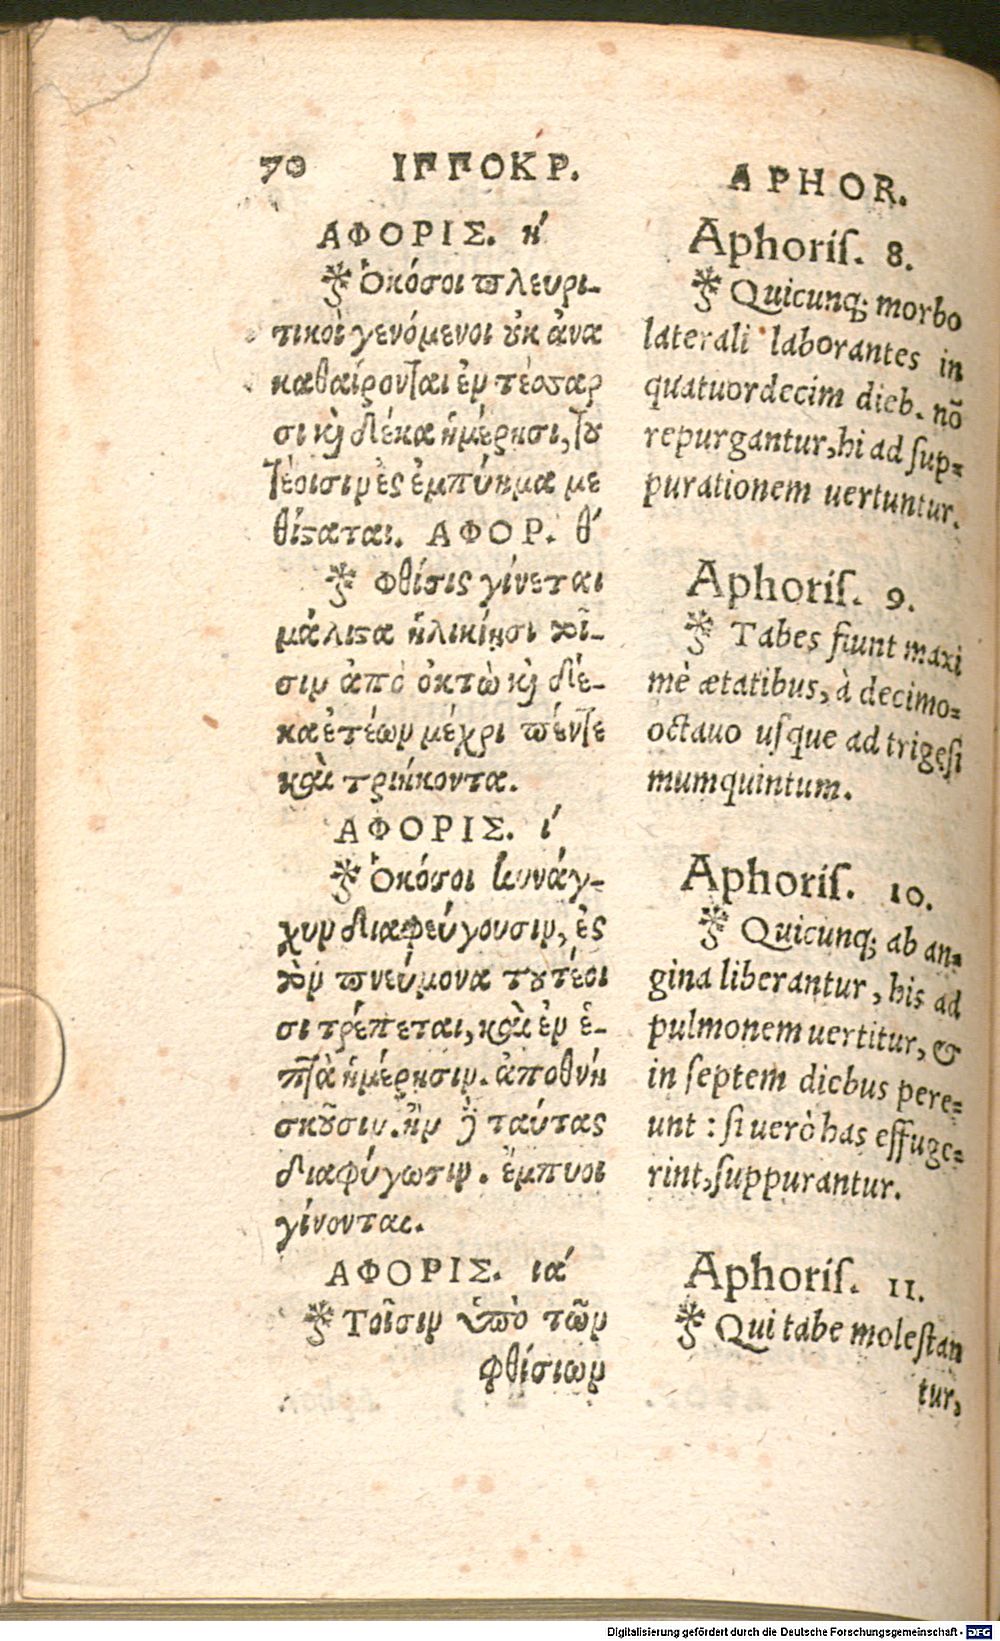 70 ΙΠΠΟΚΡ.
ΑΦΟΡΙΣ. η΄
Ὁκόσοι πλευρι-
τικοὶ γενόμενοι οὐκ ἀνα
καθαίρονται ἐν τέσσαρ
σι καὶ δέκα ἡμέρησι, του
τέοισιν ἐς ἐμπύημα με
θίσταται. ΑΦΟΡ. θ΄
Φθίσις γίνεται
μάλιστα ἡλικίῃσι τοῖ-
σιν ἀπὸ ὀκτὼ καὶ δέ-
κα ἐτέων μέχρι πέντε
καὶ τριήκοντα.
ΑΦΟΡΙΣ. ι΄
Ὁκόσοι κυνάγ-
χην διαφεύγουσιν, ἐς
τὸν πνεύμονα τουτέοι
σι τρέπεται, καὶ ἐν ἑ-
πτὰ ἡμέρησιν. ἀποθνή
σκουσιν. ἢν δὲ ταύτας
διαφύγωσιν. ἔμπυοι
γίνονται.
ΑΦΟΡΙΣ. ια΄
Τοῖσιν ὑπὸ τῶν
φθίσιων
APHOR.
Aphoriſ. 8.
Quicunq; morbo
laterali laborantes in
quatuordecim dieb. nō
repurgantur, hi ad ſup=
purationem uertuntur.
Aphoriſ. 9.
Tabes fiunt maxi
mè ætatibus, à decimo=
octauo uſque ad trigeſi
mumquintum.
Aphoriſ. 10.
Quicunq; ab an=
gina liberantur, his ad
pulmonem uertitur, &
in ſeptem diebus pere=
unt : ſi uerò has effuge=
rint, ſuppurantur.
Aphoriſ. 11.
Qui tabe moleſtan
tur,
Digitalisierung gefördert durch die Deutsche Forschungsgemeinschaft - DFG